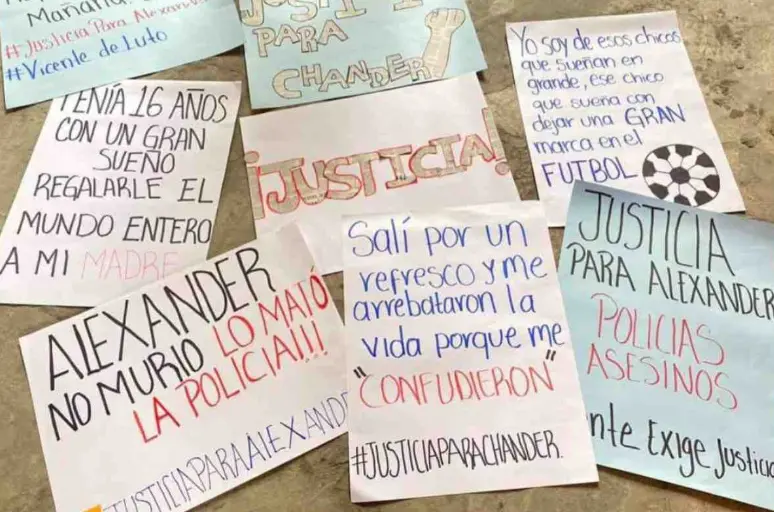 Mañana
#Justicia Para Alexander
#Vicente de Luto
JUSTICIA
PARA
CHANDER
Yo soy de esos chicos
que sueñan en
grande, ese chico
que sueña con
dejar una GRAN
marca en el
FUTBOL
TENÍA 16 AÑOS
CON UN GRAN
SUEÑO
REGALARLE EL
MUNDO ENTERO
A MI MADRE
¡JUSTICIA!
ALEXANDER
NO MURIO LO MATÓ
LA POLICIA!!!
#JUSTICIAPARAALEXANDER
Salí por un
refresco y me
arrebataron la
vida porque me
"CONFUDIERON"
#JUSTICIAPARACHANDER.
JUSTICIA
PARA ALEXANDER
POLICIAS
ASESINOS
nte Exige Justicia